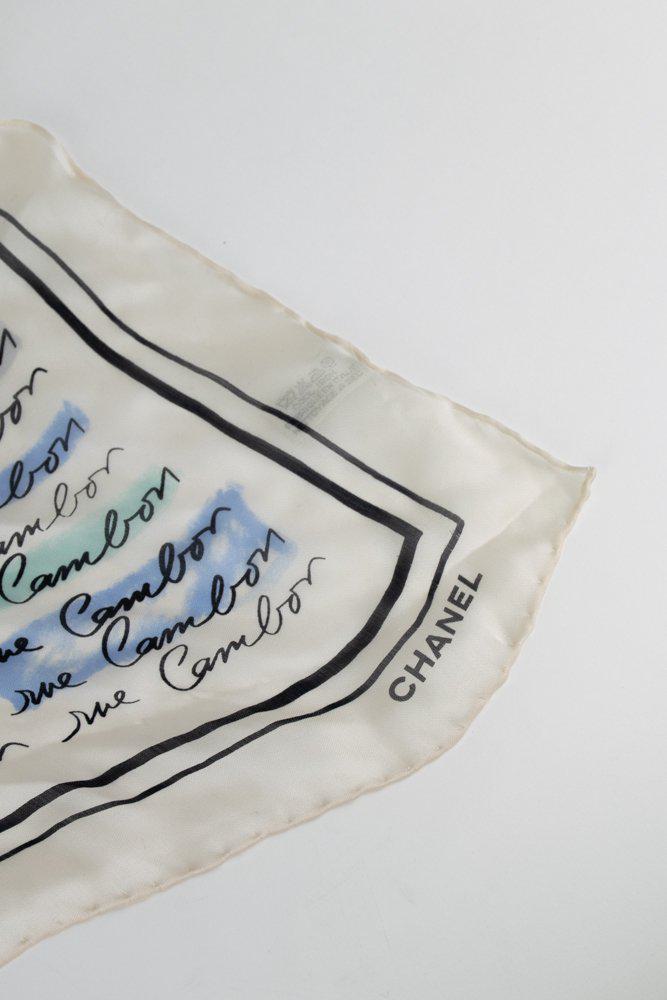 Cambon
Cambon
rue Cambon
rue Cambon
rue Cambon
CHANEL